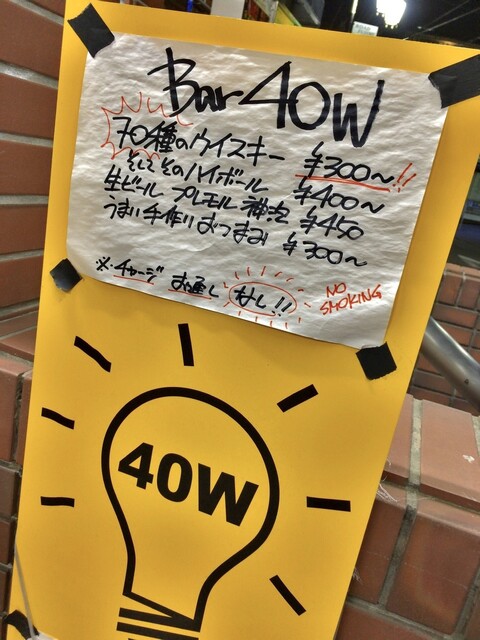 Bar 40W
70種のウイスキー ¥300〜!!
そしてそのハイボール ¥400〜
生ビール プレモル 神泡 ¥450
うまい手作りおつまみ ¥300〜
※チャージ お通し なし!!
NO
SMOKING
40W